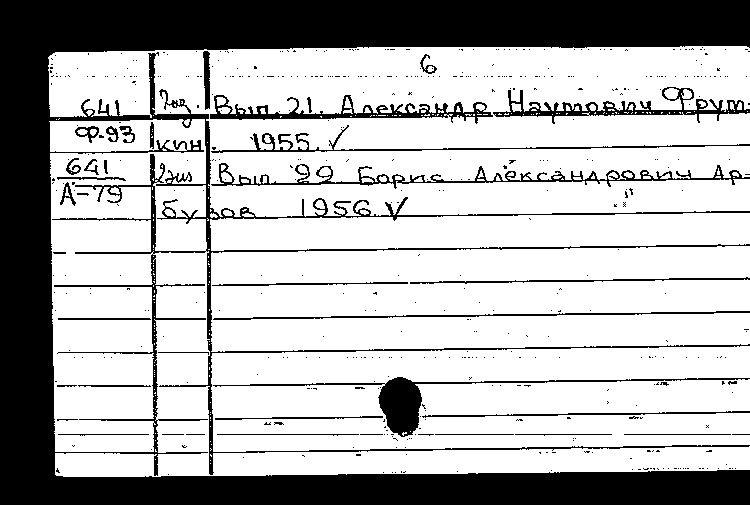 6
641 2экз. Вып. 21. Александр Наумович Фрум-
Ф-93 кин. 1955. ✓
641 2экз Вып. 22 Борис Александрович Ар-
А-79 бузов 1956. ✓